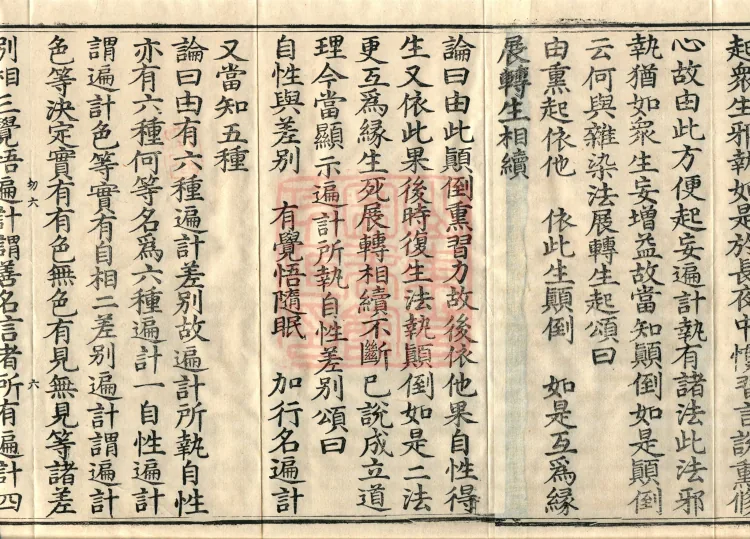 起衆生邪執如是於長夜中慣習言說熏修
心故由此方便起妄遍計執有諸法此法邪
執猶如衆生妄增益故當知顚倒如是顚倒
云何與雜染法展轉生起頌曰
由熏起依他　依此生顚倒　如是互爲緣
展轉生相續
論曰由此顚倒熏習力故後依他果自性得
生又依此果後時復生法執顚倒如是二法
更互爲緣生死展轉相續不斷已說成立道
理今當顯示遍計所執自性差別頌曰
自性與差別　有覺悟隨眠　加行名遍計
又當知五種
論曰由有六種遍計差別故遍計所執自性
亦有六種何等名爲六種遍計一自性遍計
謂遍計色等實有自相二差別遍計謂遍計
色等決定實有有色無色有見無見等諸差
勿六　六
別相三覺悟遍計謂善名言者所有遍計四